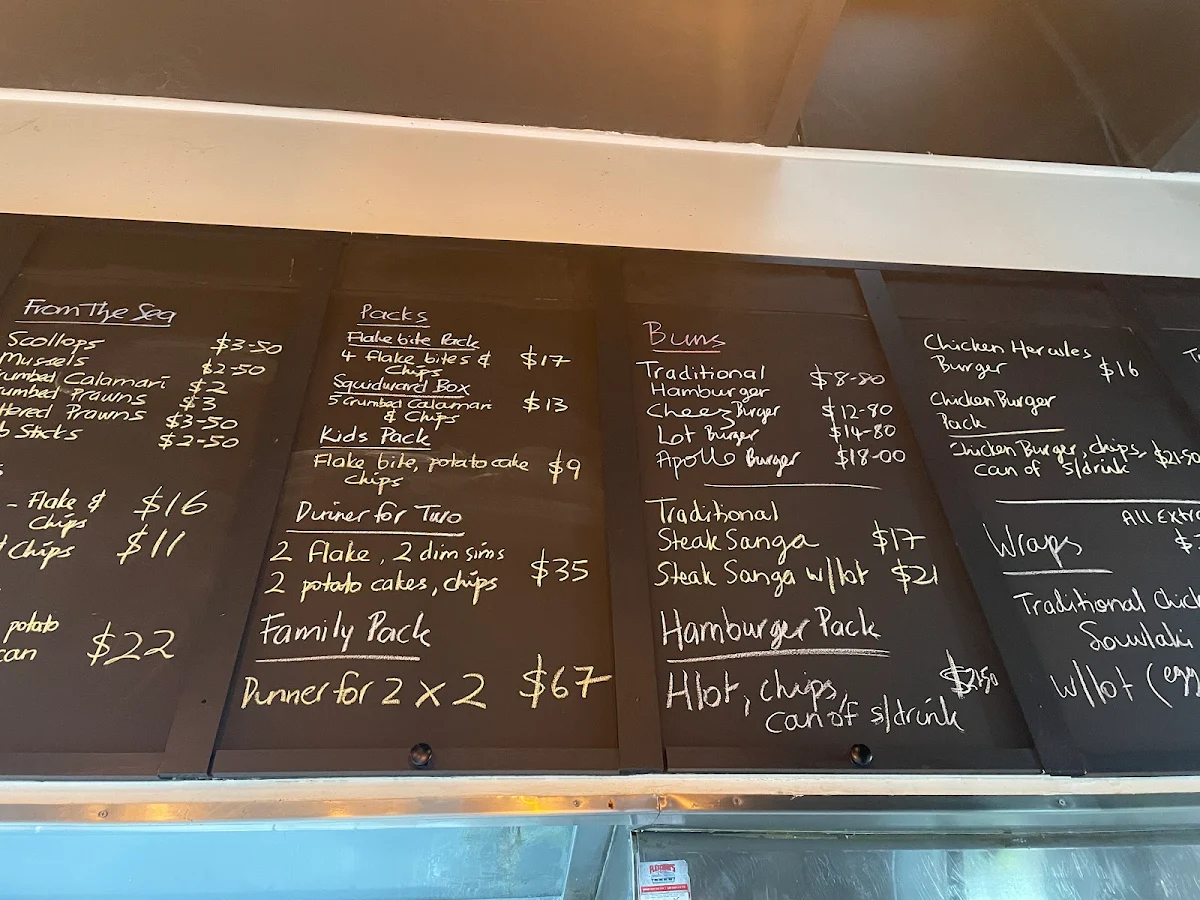 From The Sea
Scollops $3-50
Mussels $2-50
Crumbed Calamari $2
Crumbed Prawns $3
Prawns $3-50
Sticks $2-50
- Flake & $16
Chips
Chips $11
potato
can $22
Packs
Flake bite Pack
4 flake bites & $17
Chips
Squidward Box
5 Crumbed Calamari $13
& Chips
Kids Pack
Flake bite, potato cake $9
chips
Dinner for Two
2 Flake, 2 dim sims
2 potato cakes, chips $35
Family Pack
Dinner for 2 x 2 $67
Buns
Traditional
Hamburger $8-80
Cheez Burger $12-80
Lot Burger $14-80
Apollo Burger $18-00
Traditional
Steak Sanga $17
Steak Sanga w/lot $21
Hamburger Pack
Hlot, chips, $21-50
can of s/drink
Chicken Hercules
Burger $16
Chicken Burger
Pack
Chicken Burger, chips, $21-50
can of s/drink
All Extra
Wraps
Traditional Chick
Souvlaki
w/lot (egg